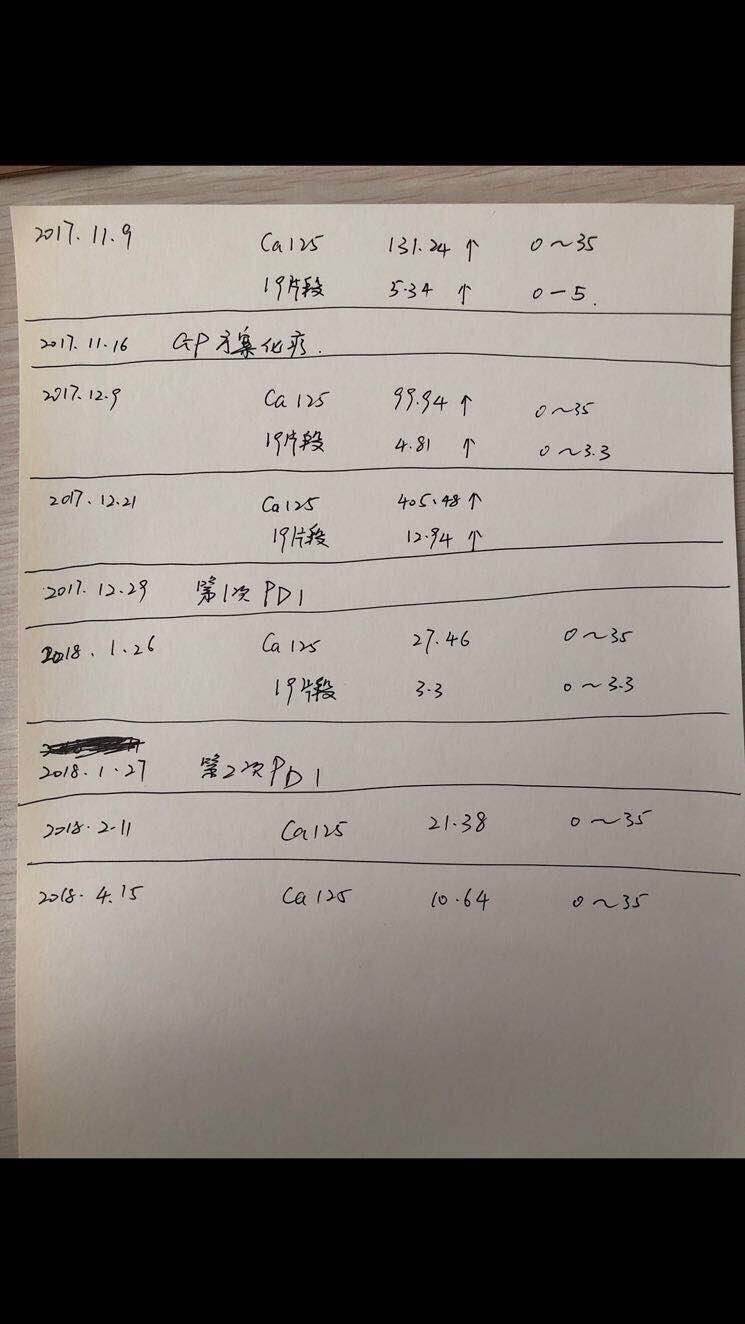 2017.11.9 Ca125 131.24 ↑ 0~35
19片段 5.34 ↑ 0-5.
2017.11.16 GP方案化疗.
2017.12.9 Ca125 99.94 ↑ 0~35
19片段 4.81 ↑ 0~3.3
2017.12.21 Ca125 405.48 ↑
19片段 12.94 ↑
2017.12.29 第1次PD1
2018.1.26 Ca125 27.46 0~35
19片段 3.3 0~3.3
2018.1.27 第2次PD1
2018.2.11 Ca125 21.38 0~35
2018.4.15 Ca125 10.64 0~35